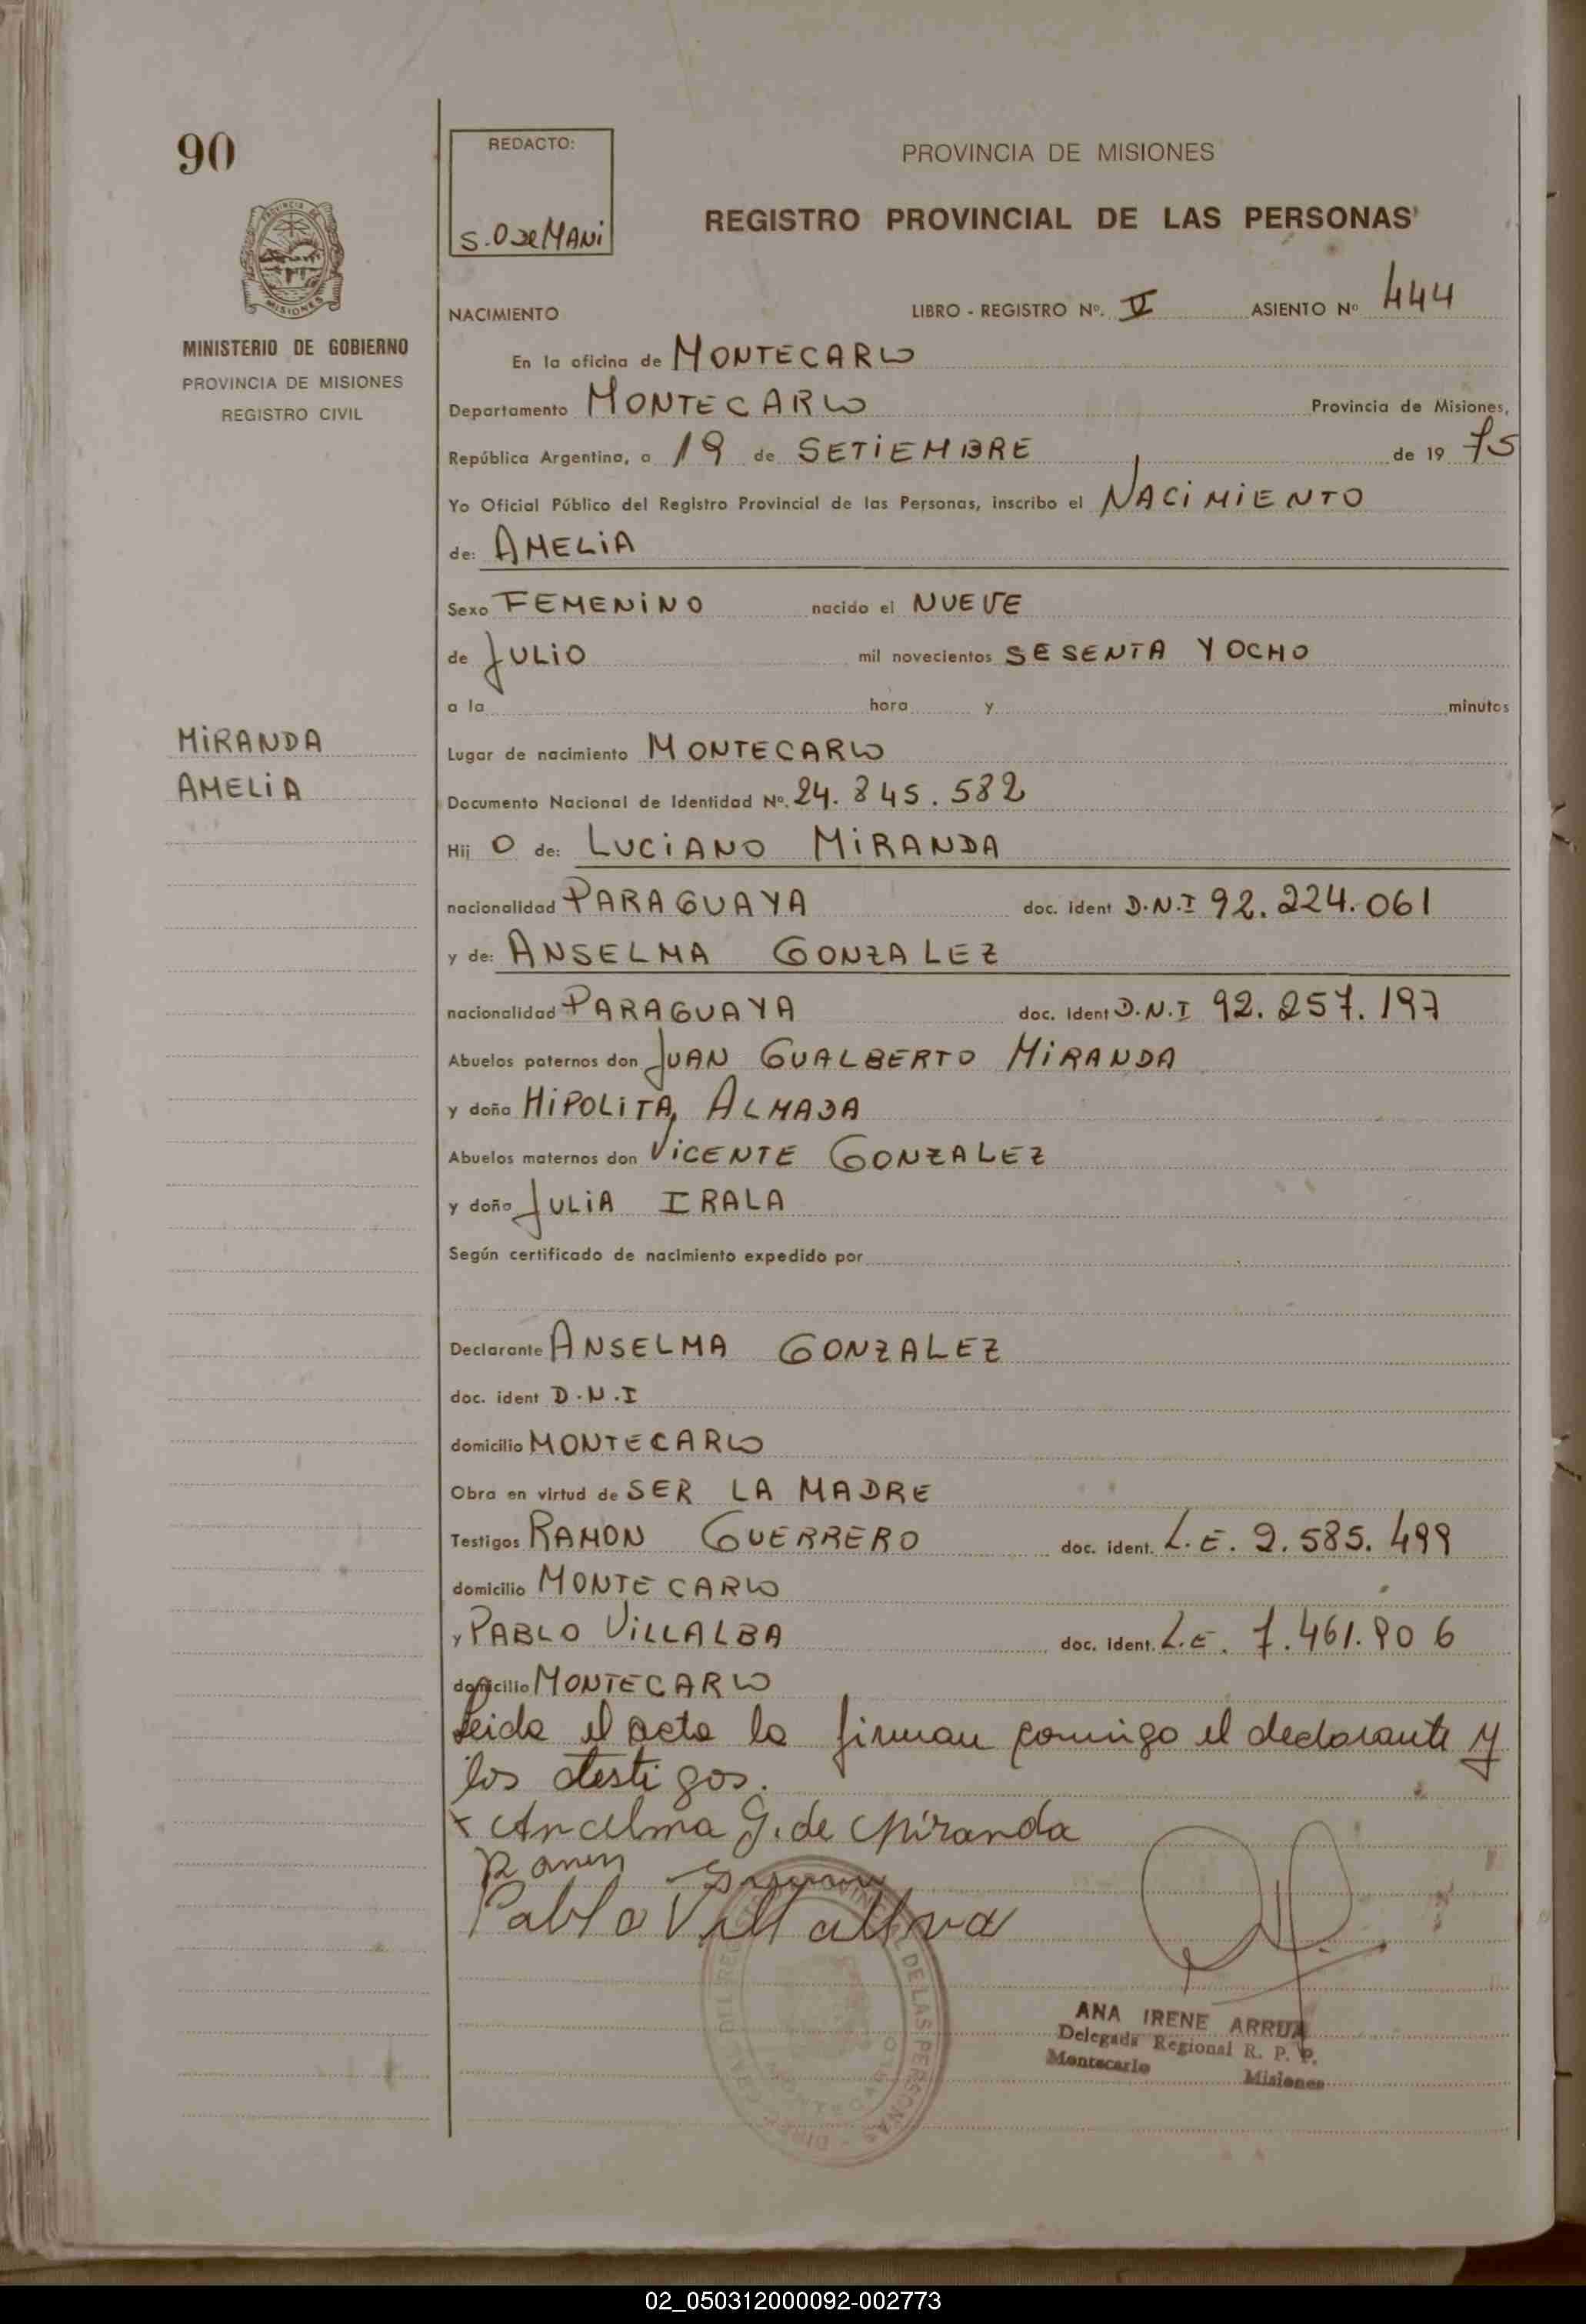 90
REDACTO:
S. O de MANi
PROVINCIA DE MISIONES
REGISTRO PROVINCIAL DE LAS PERSONAS
MINISTERIO DE GOBIERNO
PROVINCIA DE MISIONES
REGISTRO CIVIL
NACIMIENTO LIBRO - REGISTRO Nº. V ASIENTO Nº 444
En la oficina de MONTECARLO
Departamento MONTECARLO Provincia de Misiones,
República Argentina, a 19 de SETIEMBRE de 19 75
Yo Oficial Público del Registro Provincial de las Personas, inscribo el NACIMIENTO
de: AMELIA
Sexo FEMENINO nacido el NUEVE
de JULIO mil novecientos SESENTA Y OCHO
a la hora y minutos
MIRANDA
AMELIA
Lugar de nacimiento MONTECARLO
Documento Nacional de Identidad Nº. 24.845.582
Hij O de: LUCIANO MIRANDA
nacionalidad PARAGUAYA doc. ident D.N.I 92.224.061
y de: ANSELMA GONZALEZ
nacionalidad PARAGUAYA doc. ident D.N.I 92.257.197
Abuelos paternos don JUAN GUALBERTO MIRANDA
y doña HIPOLITA ALMADA
Abuelos maternos don VICENTE GONZALEZ
y doña JULIA IRALA
Según certificado de nacimiento expedido por
Declarante ANSELMA GONZALEZ
doc. ident D.N.I
domicilio MONTECARLO
Obra en virtud de SER LA MADRE
Testigos RAMON GUERRERO doc. ident. L.E. 2.585.499
domicilio MONTECARLO
y PABLO VILLALBA doc. ident. L.E. 7.461.806
domicilio MONTECARLO
Leida el acta la firman comigo el declarante y
los testigos.
x Ancelma G. de Miranda
Ramon
Pablo Villalba
ANA IRENE ARRUA
Delegada Regional R. P. P.
Montecarlo Misiones
02_050312000092-002773